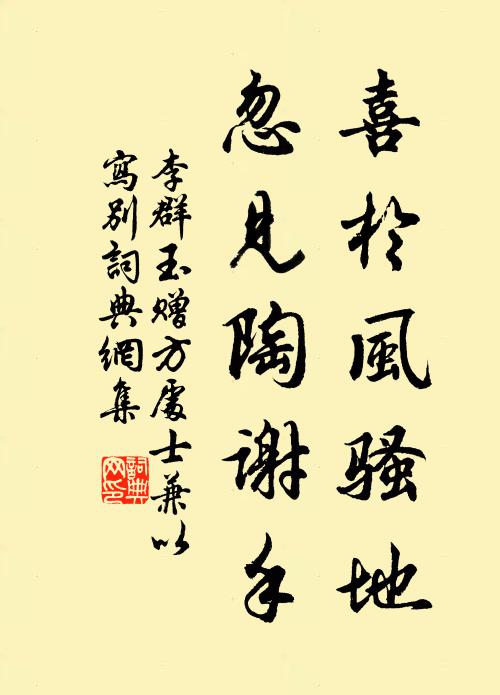 喜於風騷地
忽見陶謝手
李群玉贈方處士兼以
寫別詞典網集
詞典
网印